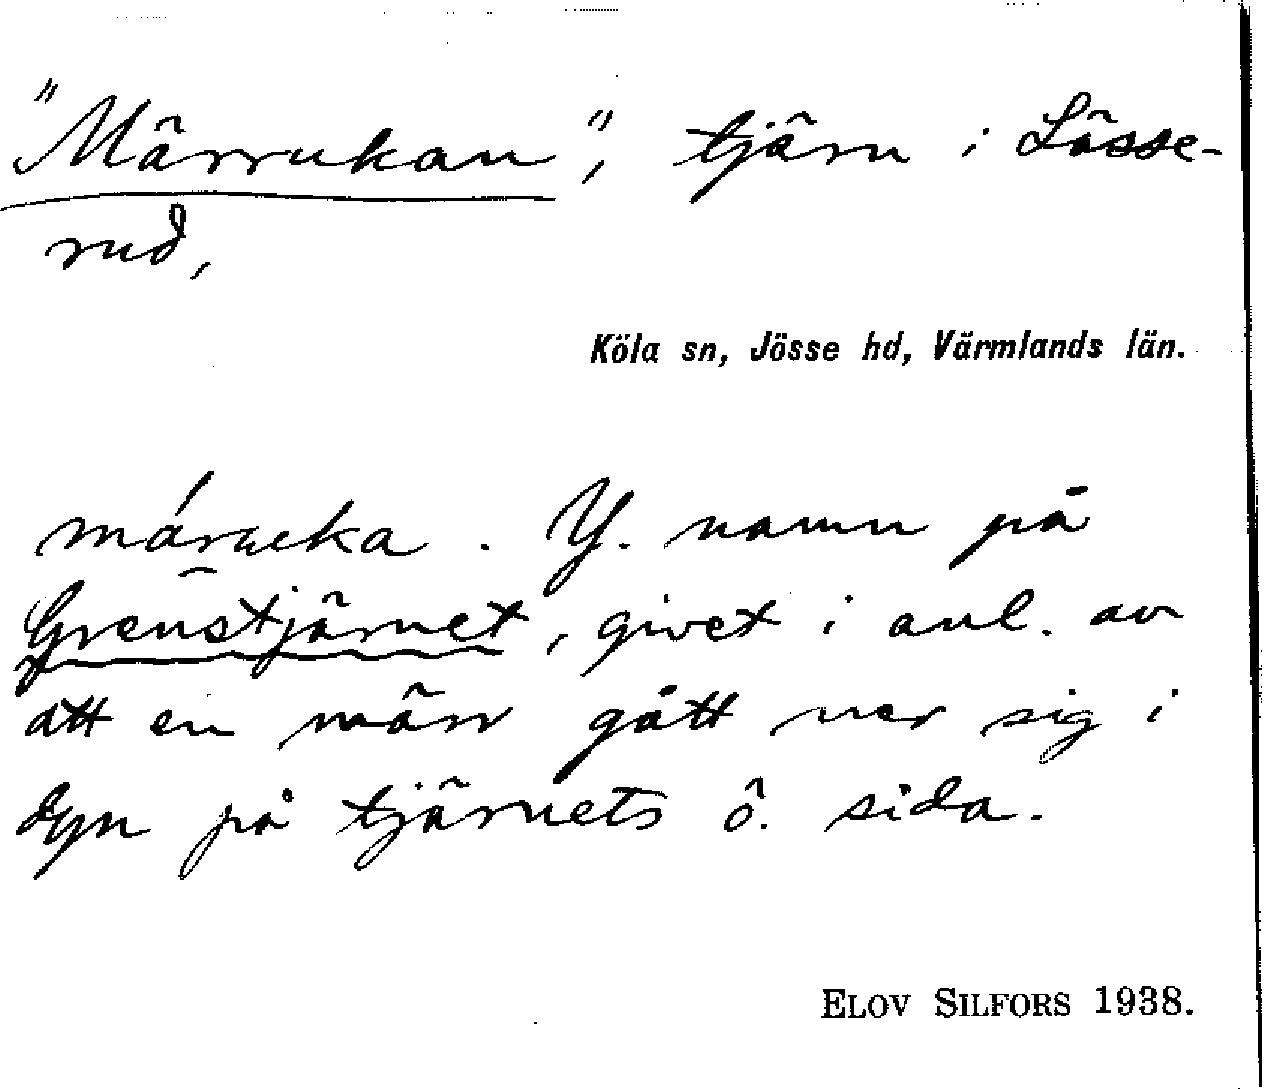 "Märrukan", tjärn i Lässe-
rud,
Köla sn, Jösse hd, Värmlands län.
márucka. Y. namn på
Grenstjärnet, givet i anl. av
att en märr gått ner sig i
dyn på tjärnets ö. sida.
ELOV SILFORS 1938.